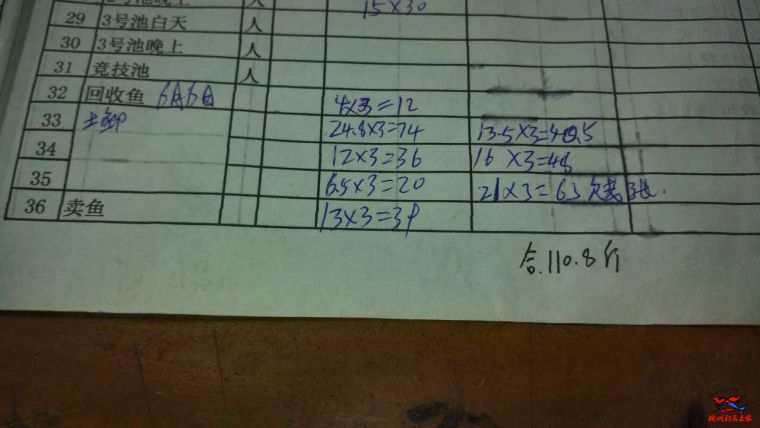 15×30
29 3号池白天 人
30 3号池晚上 人
31 竞技池 人
32 回收鱼 6月6日 4×3=12
33 土鲫 24.8×3=74 13.5×3=40.5
34 12×3=36 16×3=48
35 6.5×3=20 21×3=63
36 卖鱼 13×3=39
合.110.8斤